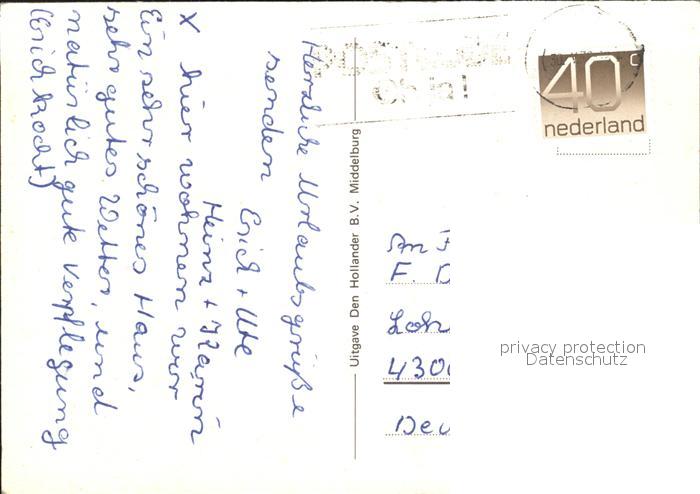 Herzliche Urlaubsgrüße
senden
Erich + Ute
Heinz + Karin
X hier wohnen wir
Ein sehr schönes Haus,
sehr gutes Wetter, und
natürlich gute Verpflegung
(Erich kocht)
Uitgave Den Hollander B.V. Middelburg
40 c
nederland
Oh ja!
An F
F. D
Loh
430
Deu
privacy protection
Datenschutz